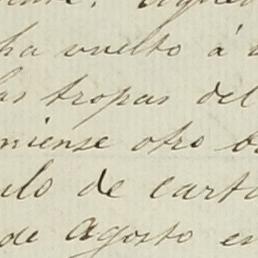 ha vuelto á
las tropas del
niense otro
ulo de carta
de agosto en